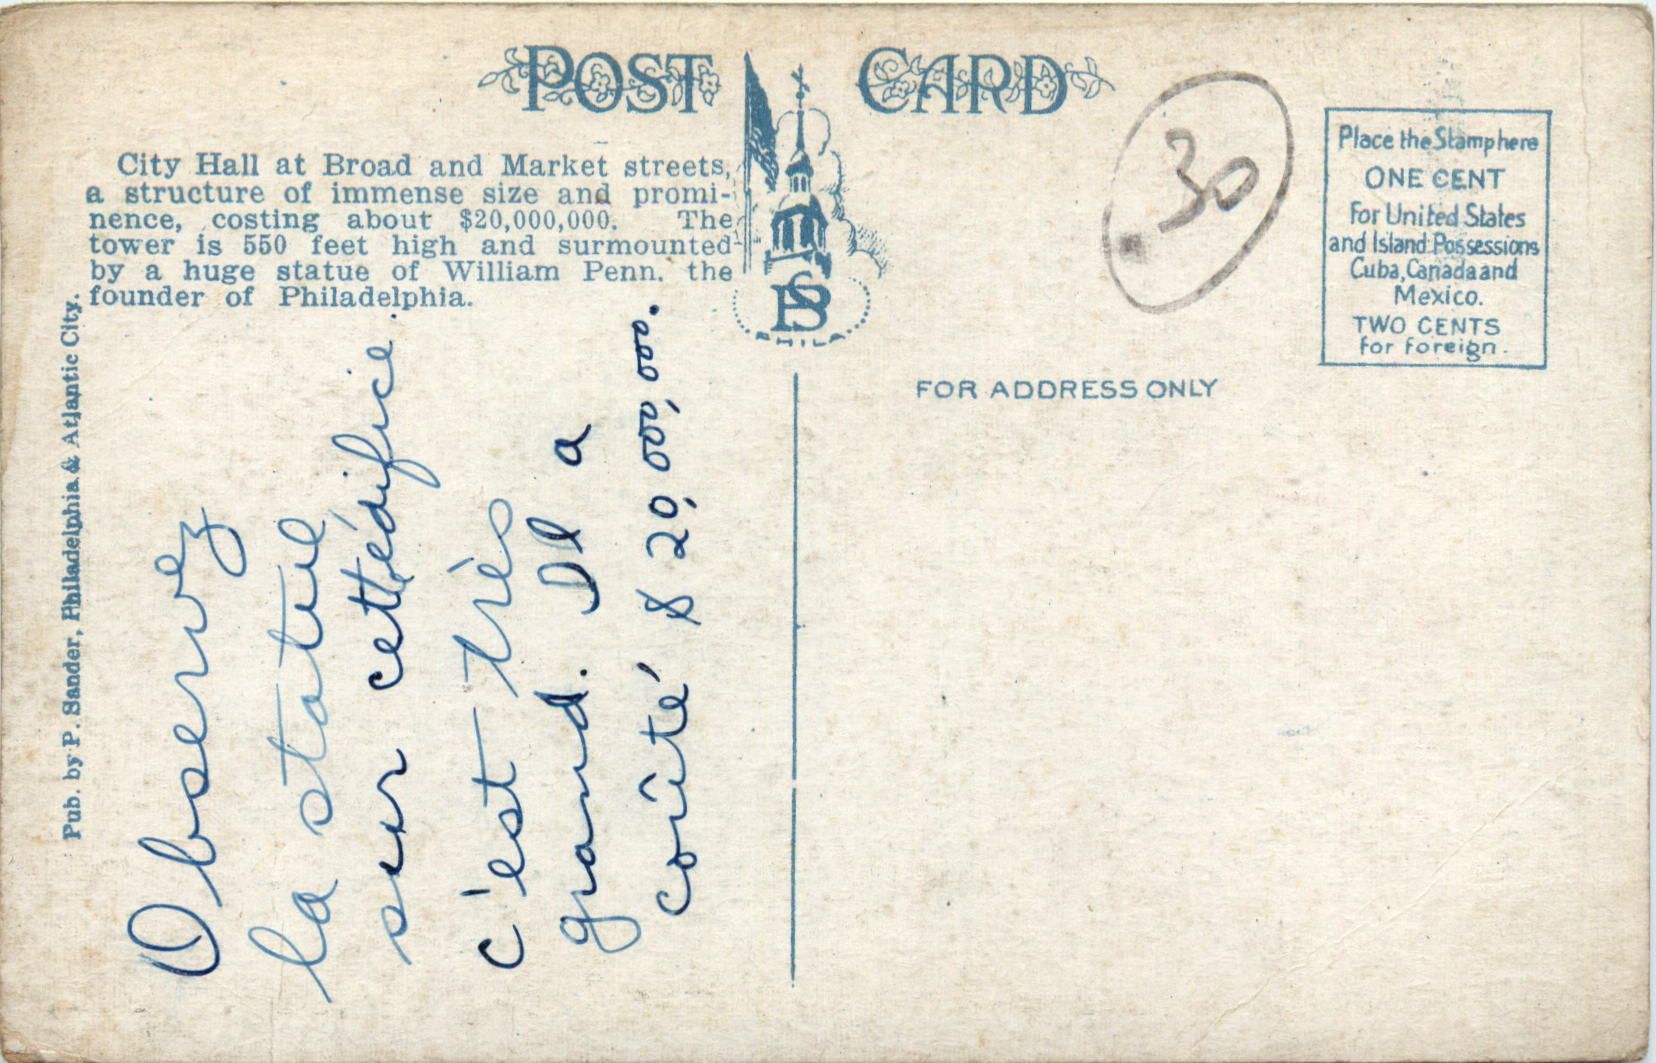 POST CARD
City Hall at Broad and Market streets,
a structure of immense size and promi-
nence, costing about $20,000,000. The
tower is 550 feet high and surmounted
by a huge statue of William Penn. the
founder of Philadelphia.
Pub. by P. Sander, Philadelphia & Atlantic City.
Observez
la statue
sur cette édifice.
c'est très
grand. Il a
coûté $20,000,000.
PS
PHILA
.30
Place the Stamp here
ONE CENT
For United States
and Island Possessions
Cuba, Canada and
Mexico.
TWO CENTS
for foreign.
FOR ADDRESS ONLY